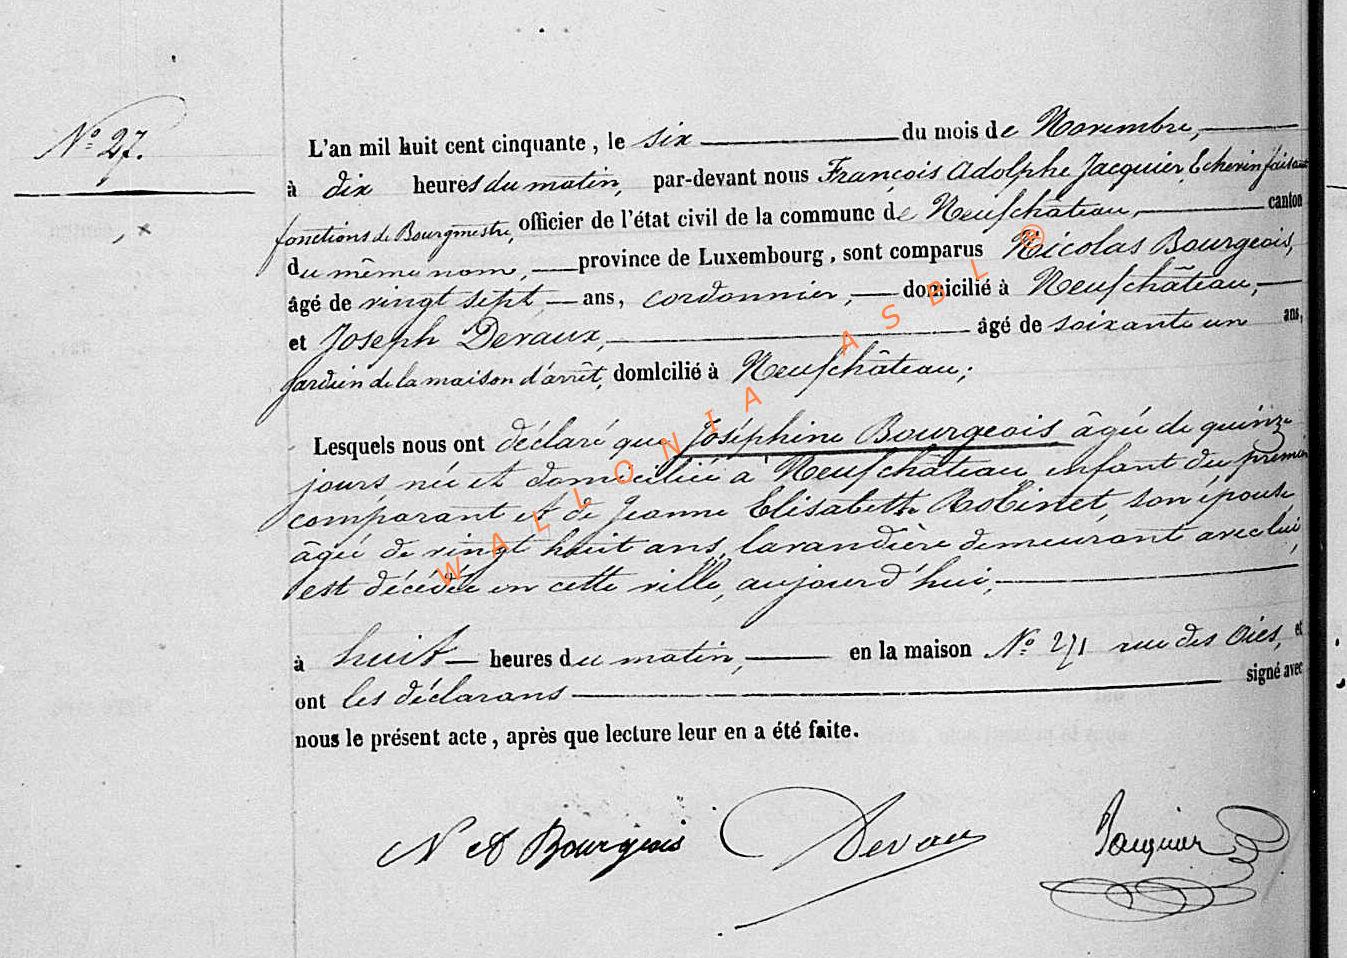 N° 27.
L'an mil huit cent cinquante, le six du mois de Novembre,
à dix heures du matin, par-devant nous François Adolphe Jacquier, Echevin faisant
fonctions de Bourgmestre, officier de l'état civil de la commune de Neufchâteau, canton
du même nom, province de Luxembourg, sont comparus Nicolas Bourgeois,
âgé de vingt sept ans, cordonnier, domicilié à Neufchâteau,
et Joseph Devaux, âgé de soixante un ans,
gardien de la maison d'arrêt, domicilié à Neufchâteau;
Lesquels nous ont déclaré que Joséphine Bourgeois âgée de quinze
jours née et domiciliée à Neufchâteau, enfant du premier
comparant et de Jeanne Elisabeth Robinet, son épouse
âgée de vingt huit ans, lavandière demeurant avec lui,
est décédée en cette ville, aujourd'hui,
à huit heures du matin, en la maison N° 271 rue des Oies, et
ont les déclarans signé avec
nous le présent acte, après que lecture leur en a été faite.
N A Bourgeois Devaux Jacquier
WALLONIA ASBL ®